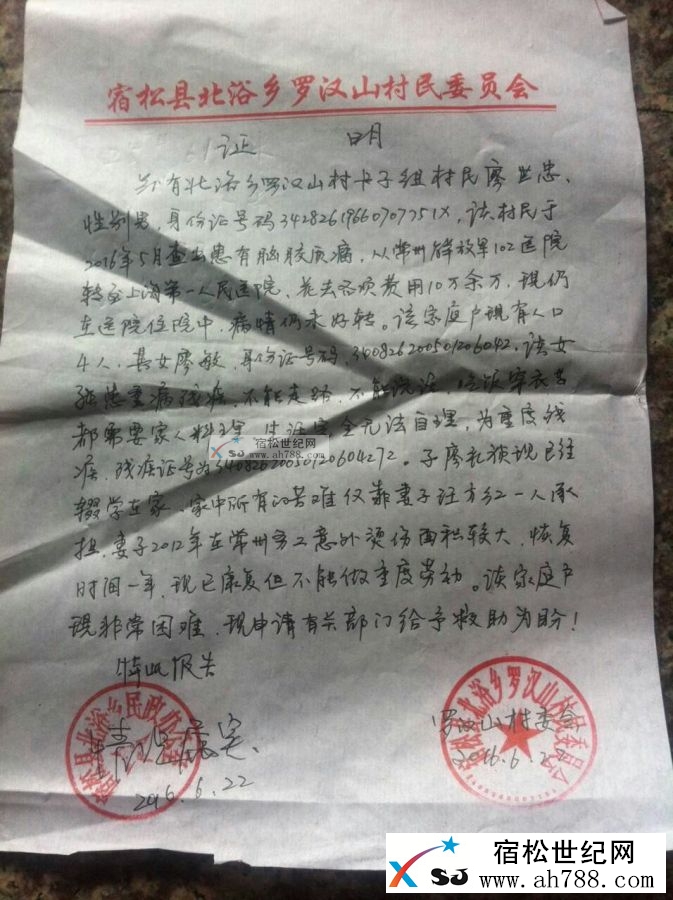 宿松县北浴乡罗汉山村民委员会
证 明
兹有北浴乡罗汉山村卡子组村民廖兰忠,
性别男,身份证号码34282619660707751X,该村民于
2016年5月查出患有脑胶质瘤,从常州解放军102医院
转至上海第一人民医院,花去各项费用10万余万,现仍
在医院住院中,病情仍未好转。该家庭户现有人口
4人,其女廖敏,身份证号码:340826200501206042,该女
孩患重病残疾,不能走路,不能说话,吃饭穿衣等
都需要家人料理,生活完全无法自理,为重度残
疾,残疾证号为34082620050120604272。子廖礼 现已经
辍学在家,家中所有的苦难仅靠妻子汪方红一人承
担,妻子2012年在常州务工意外烫伤面积较大,恢复
时间一年,现已康复但不能做重度劳动。该家庭户
现非常困难,现申请有关部门给予救助为盼!
特此报告
情况属实.
2016.6.22
罗汉山村委会
2016.6.2
宿松世纪网
www.ah788.com
XSJ 宿松世纪网
www.ah788.com